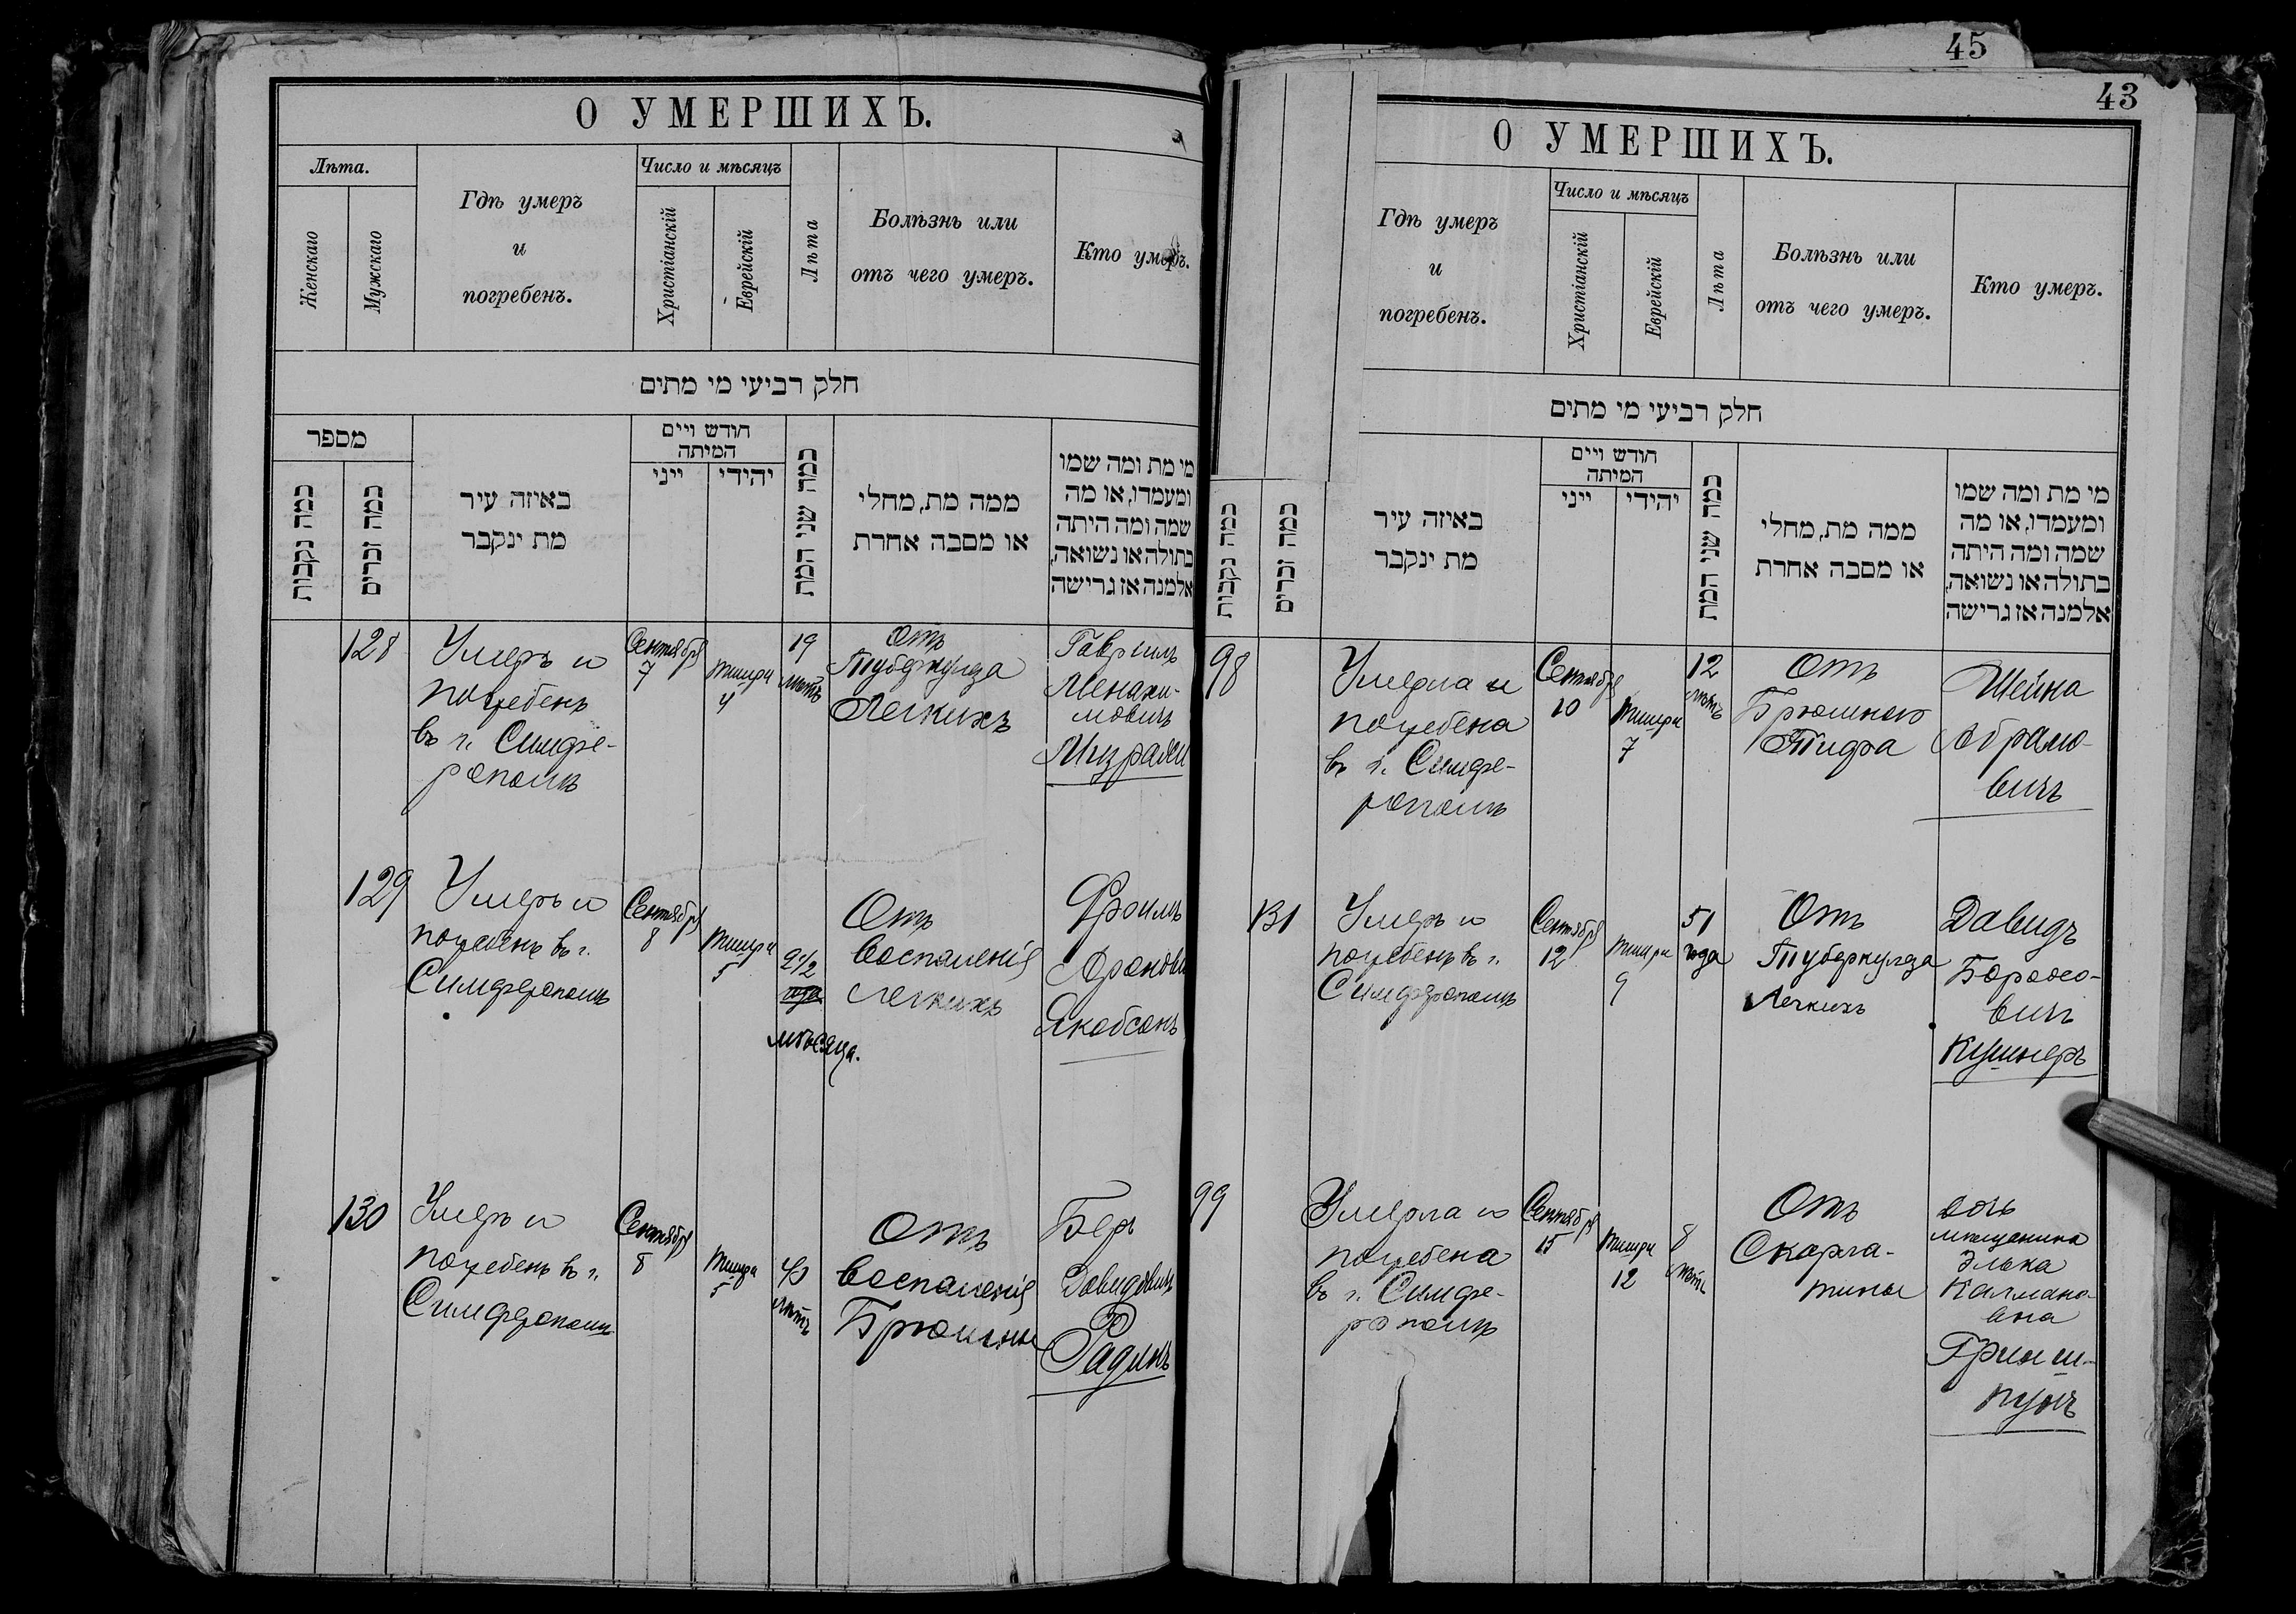 45
43
О УМЕРШИХЪ.
Лѣта.
Женскаго
Мужскаго
Гдѣ умеръ
и
погребенъ.
Число и мѣсяцъ
Христіанскій
Еврейскій
Лѣта
Болѣзнь или
отъ чего умеръ.
Кто умеръ.
חלק רביעי מי מתים
מספר
כמה נקבות
כמה זכרים
באיזה עיר
מת ינקבר
חודש ויים
המיתה
ייני
יהידי
כמה שני המת
ממה מת, מחלי
או מסבה אחרת
מי מת ומה שמו
ומעמדו, או מה
שמה ומה היתה
בתולה או נשואה,
אלמנה אז גרישה
128
Умеръ и
погребенъ
въ г. Симфе-
рополѣ
Сентября
7
Тишри
4
19
лѣтъ
Отъ
Туберкулеза
Легкихъ
Гавріилъ
Менахи-
мовичъ
Мизрахи
129
Умеръ и
погребенъ въ г.
Симферополѣ
Сентября
8
Тишри
5
2 1/2
года
мѣсяца.
Отъ
Воспаленія
Легкихъ
Фроимъ
Аронови
Якобсонъ
130
Умеръ и
погребенъ въ г.
Симферополѣ
Сентября
8
Тишри
5
40
лѣтъ
Отъ
Воспаленія
Брюшины
Беръ
Давидовичъ
Радинъ
О УМЕРШИХЪ.
Гдѣ умеръ
и
погребенъ.
Число и мѣсяцъ
Христіанскій
Еврейскій
Лѣта
Болѣзнь или
отъ чего умеръ.
Кто умеръ.
חלק רביעי מי מתים
כמה נקבות
כמה זכרים
באיזה עיר
מת ינקבר
חודש ויים
המיתה
ייני
יהידי
כמה שני המת
ממה מת, מחלי
או מסבה אחרת
מי מת ומה שמו
ומעמדו, או מה
שמה ומה היתה
בתולה או נשואה,
אלמנה אז גרישה
98
Умерла и
погребена
въ г. Симфе-
рополѣ
Сентября
10
Тишри
7
12
лѣтъ
Отъ
Брюшного
Тифа
Шейна
Абрамо-
вичъ
131
Умеръ и
погребенъ въ г.
Симферополѣ
Сентября
12
Тишри
9
51
года
Отъ
Туберкулеза
Легкихъ
Давидъ
Борохо-
вичъ
Кушнеръ
99
Умерла и
погребена
въ г. Симфе-
рополѣ
Сентября
15
Тишри
12
8
лѣтъ
Отъ
Скарла-
тины
дочь
мѣщанина
Элька
Калмано-
вна
Гринш-
пунъ